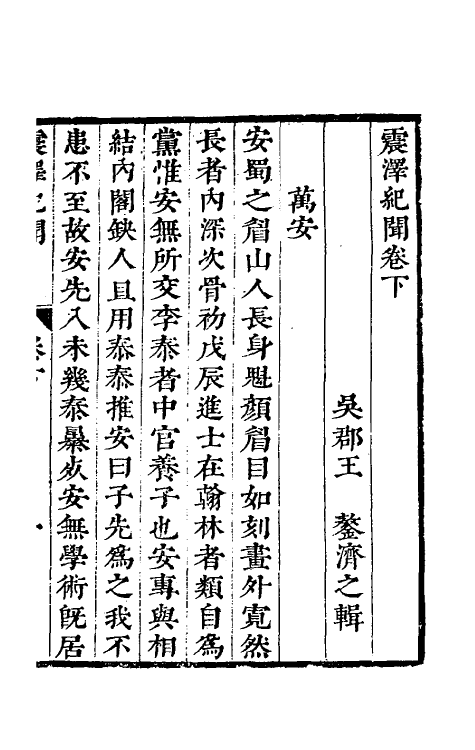 震澤紀聞卷下
吳郡王　鏊濟之輯
萬安
安蜀之眉山人長身魁顏眉目如刻畫外寬然
長者內深次骨初戊辰進士在翰林者類自爲
黨惟安無所交李泰者中官養子也安專與相
結內閣缺人且用泰泰推安曰子先爲之我不
患不至故安先入未幾泰暴𣦸安無學術旣居
震澤紀聞
卷下
一